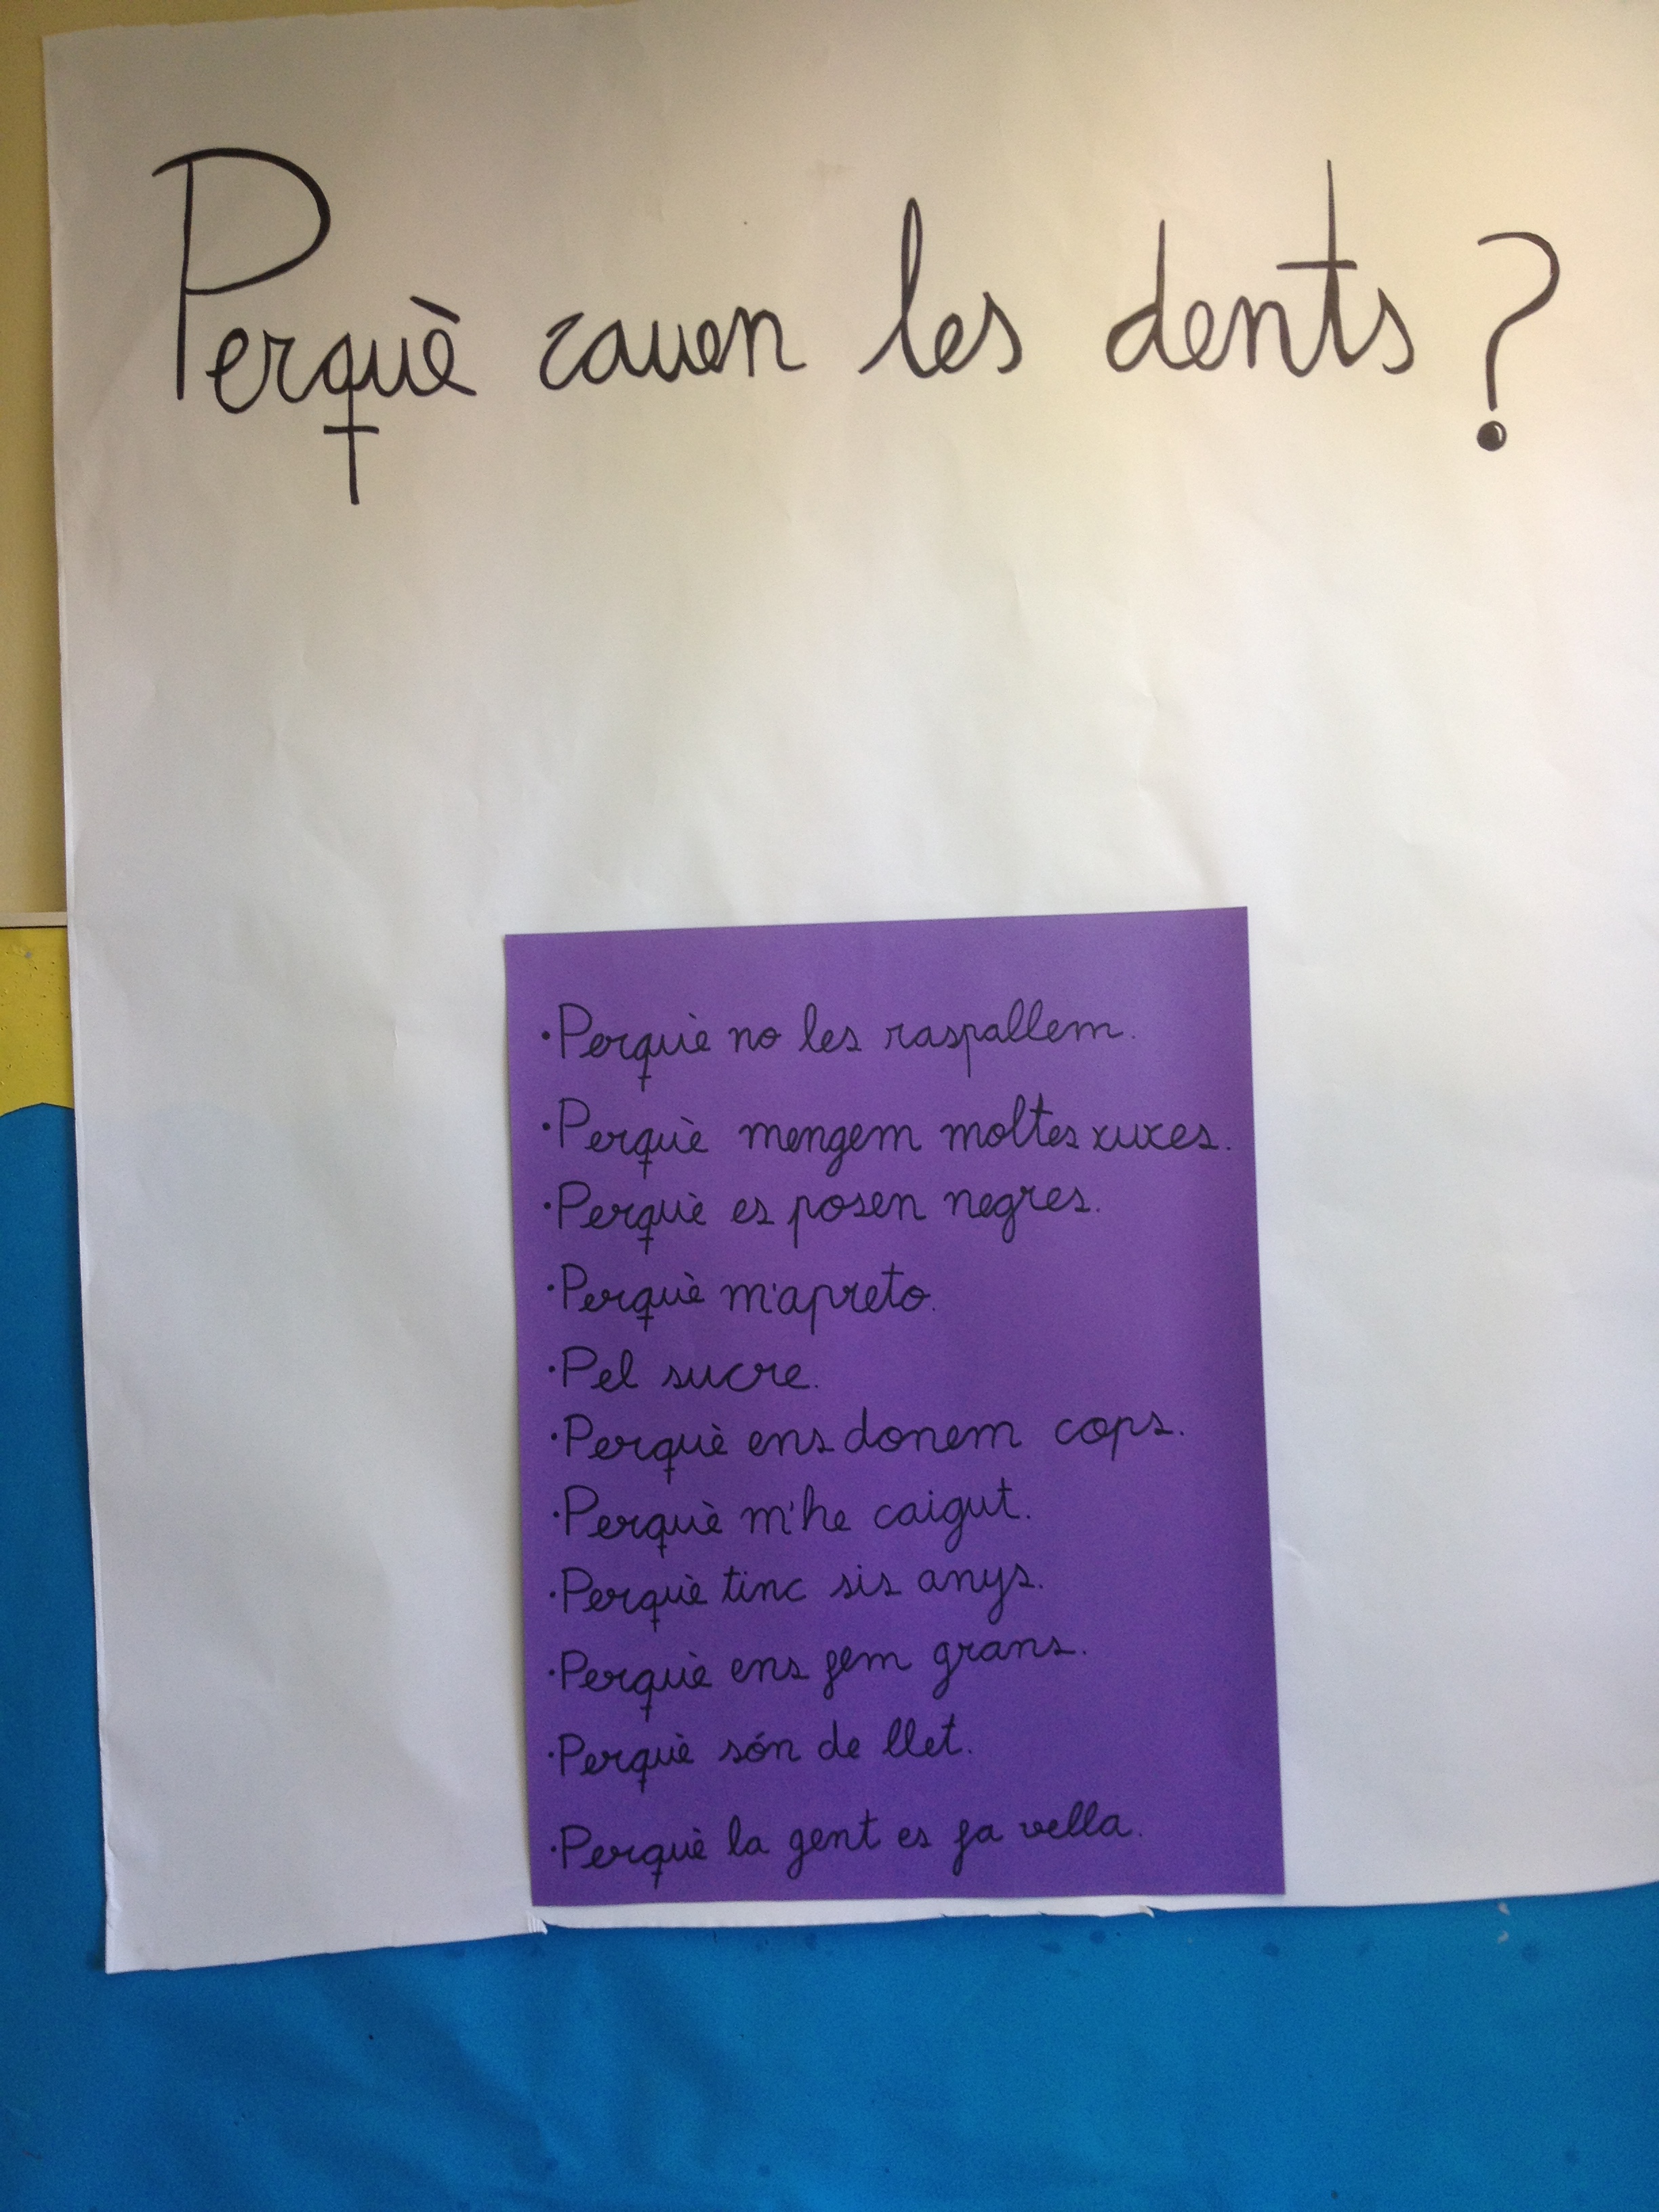 Perquè cauen les dents?
·Perquè no les raspallem.
·Perquè mengem moltes xuxes.
·Perquè es posen negres.
·Perquè m'apreto.
·Pel sucre.
·Perquè ens donem cops.
·Perquè m'he caigut.
·Perquè tinc sis anys.
·Perquè ens fem grans.
·Perquè són de llet.
·Perquè la gent es fa vella.